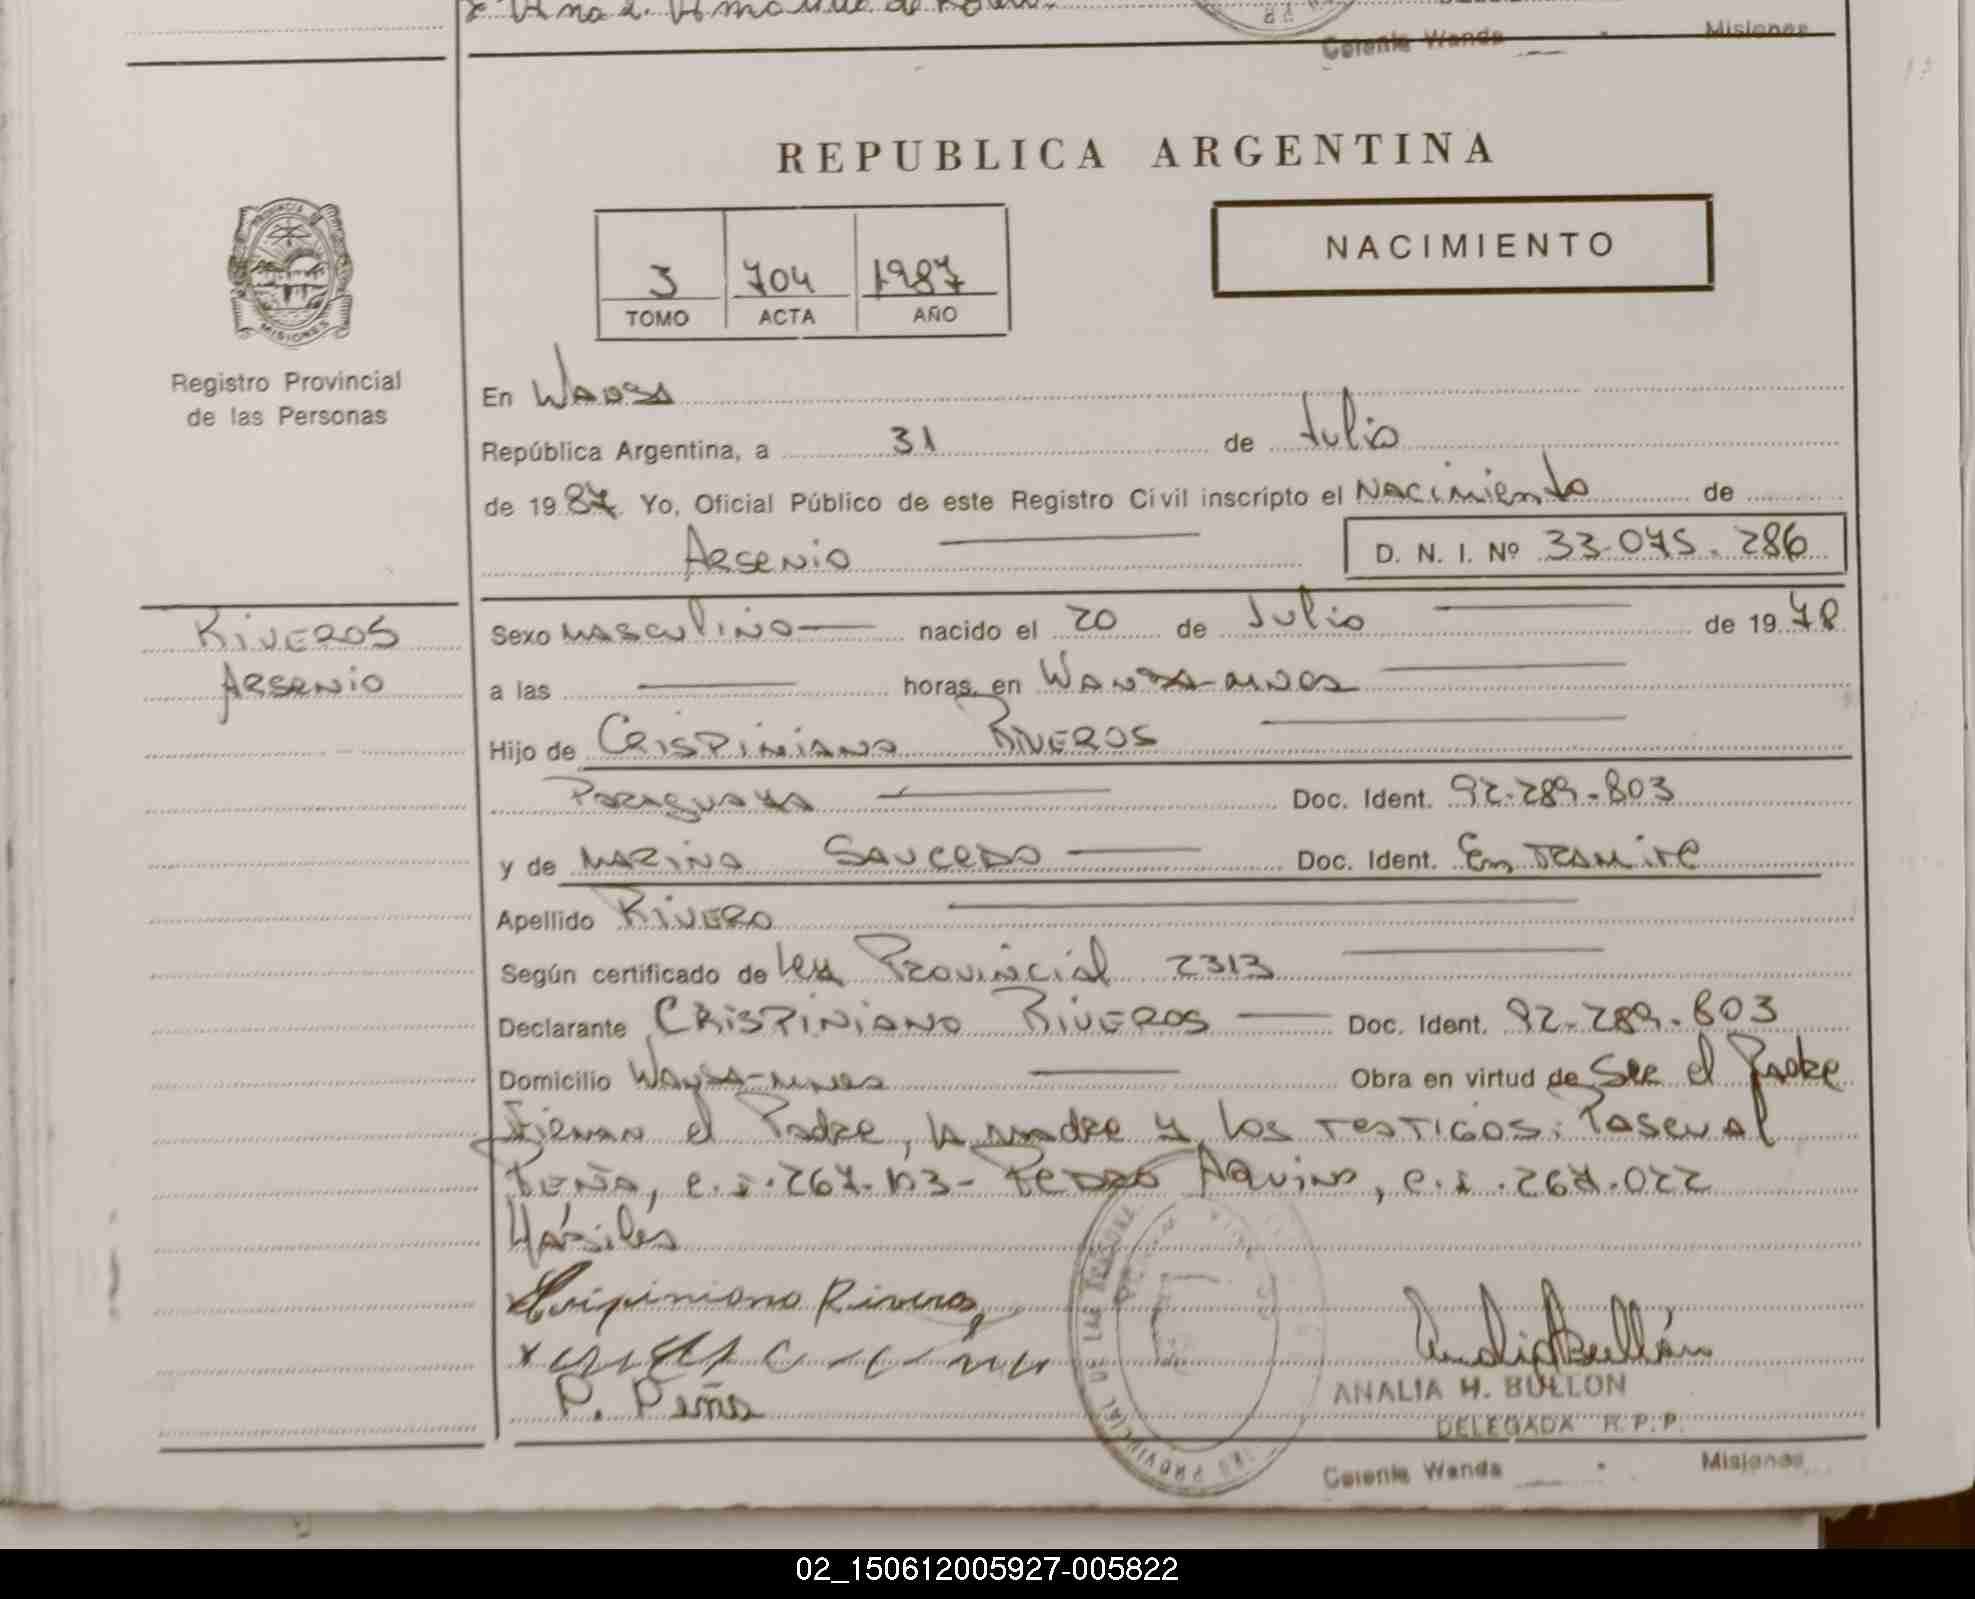 Corenia Wanda Misiones
REPUBLICA ARGENTINA
NACIMIENTO
3 704 1987
TOMO ACTA AÑO
PROVINCIA
MISIONES
Registro Provincial
de las Personas
En Wanda
República Argentina, a 31 de Julio
de 1987 Yo, Oficial Público de este Registro Civil inscripto el Nacimiento de
Arsenio D. N. I. Nº 33.075.286
RIVEROS
Arsenio
Sexo masculino nacido el 20 de Julio de 1978
a las horas, en Wanda-mnes
Hijo de Crispiniano RIVEROS
Paraguaya Doc. Ident. 92.289.803
y de MARINA SAUCEDO Doc. Ident. En TRAMITE
Apellido RIVERO
Según certificado de Ley Provincial 2313
Declarante CRISPINIANO RIVEROS Doc. Ident. 92.289.803
Domicilio Wanda-mnes Obra en virtud de Ser el Padre
Firman el Padre, la madre y los TESTIGOS: Pascual
PEÑA, c.i. 267.113- PEDRO Aquino, c.i. 267.022
Hábiles
Crispiniano Riveros
P. Peña
ANALIA H. BULLON
DELEGADA R.P.P.
Corenia Wanda Misiones
02_150612005927-005822